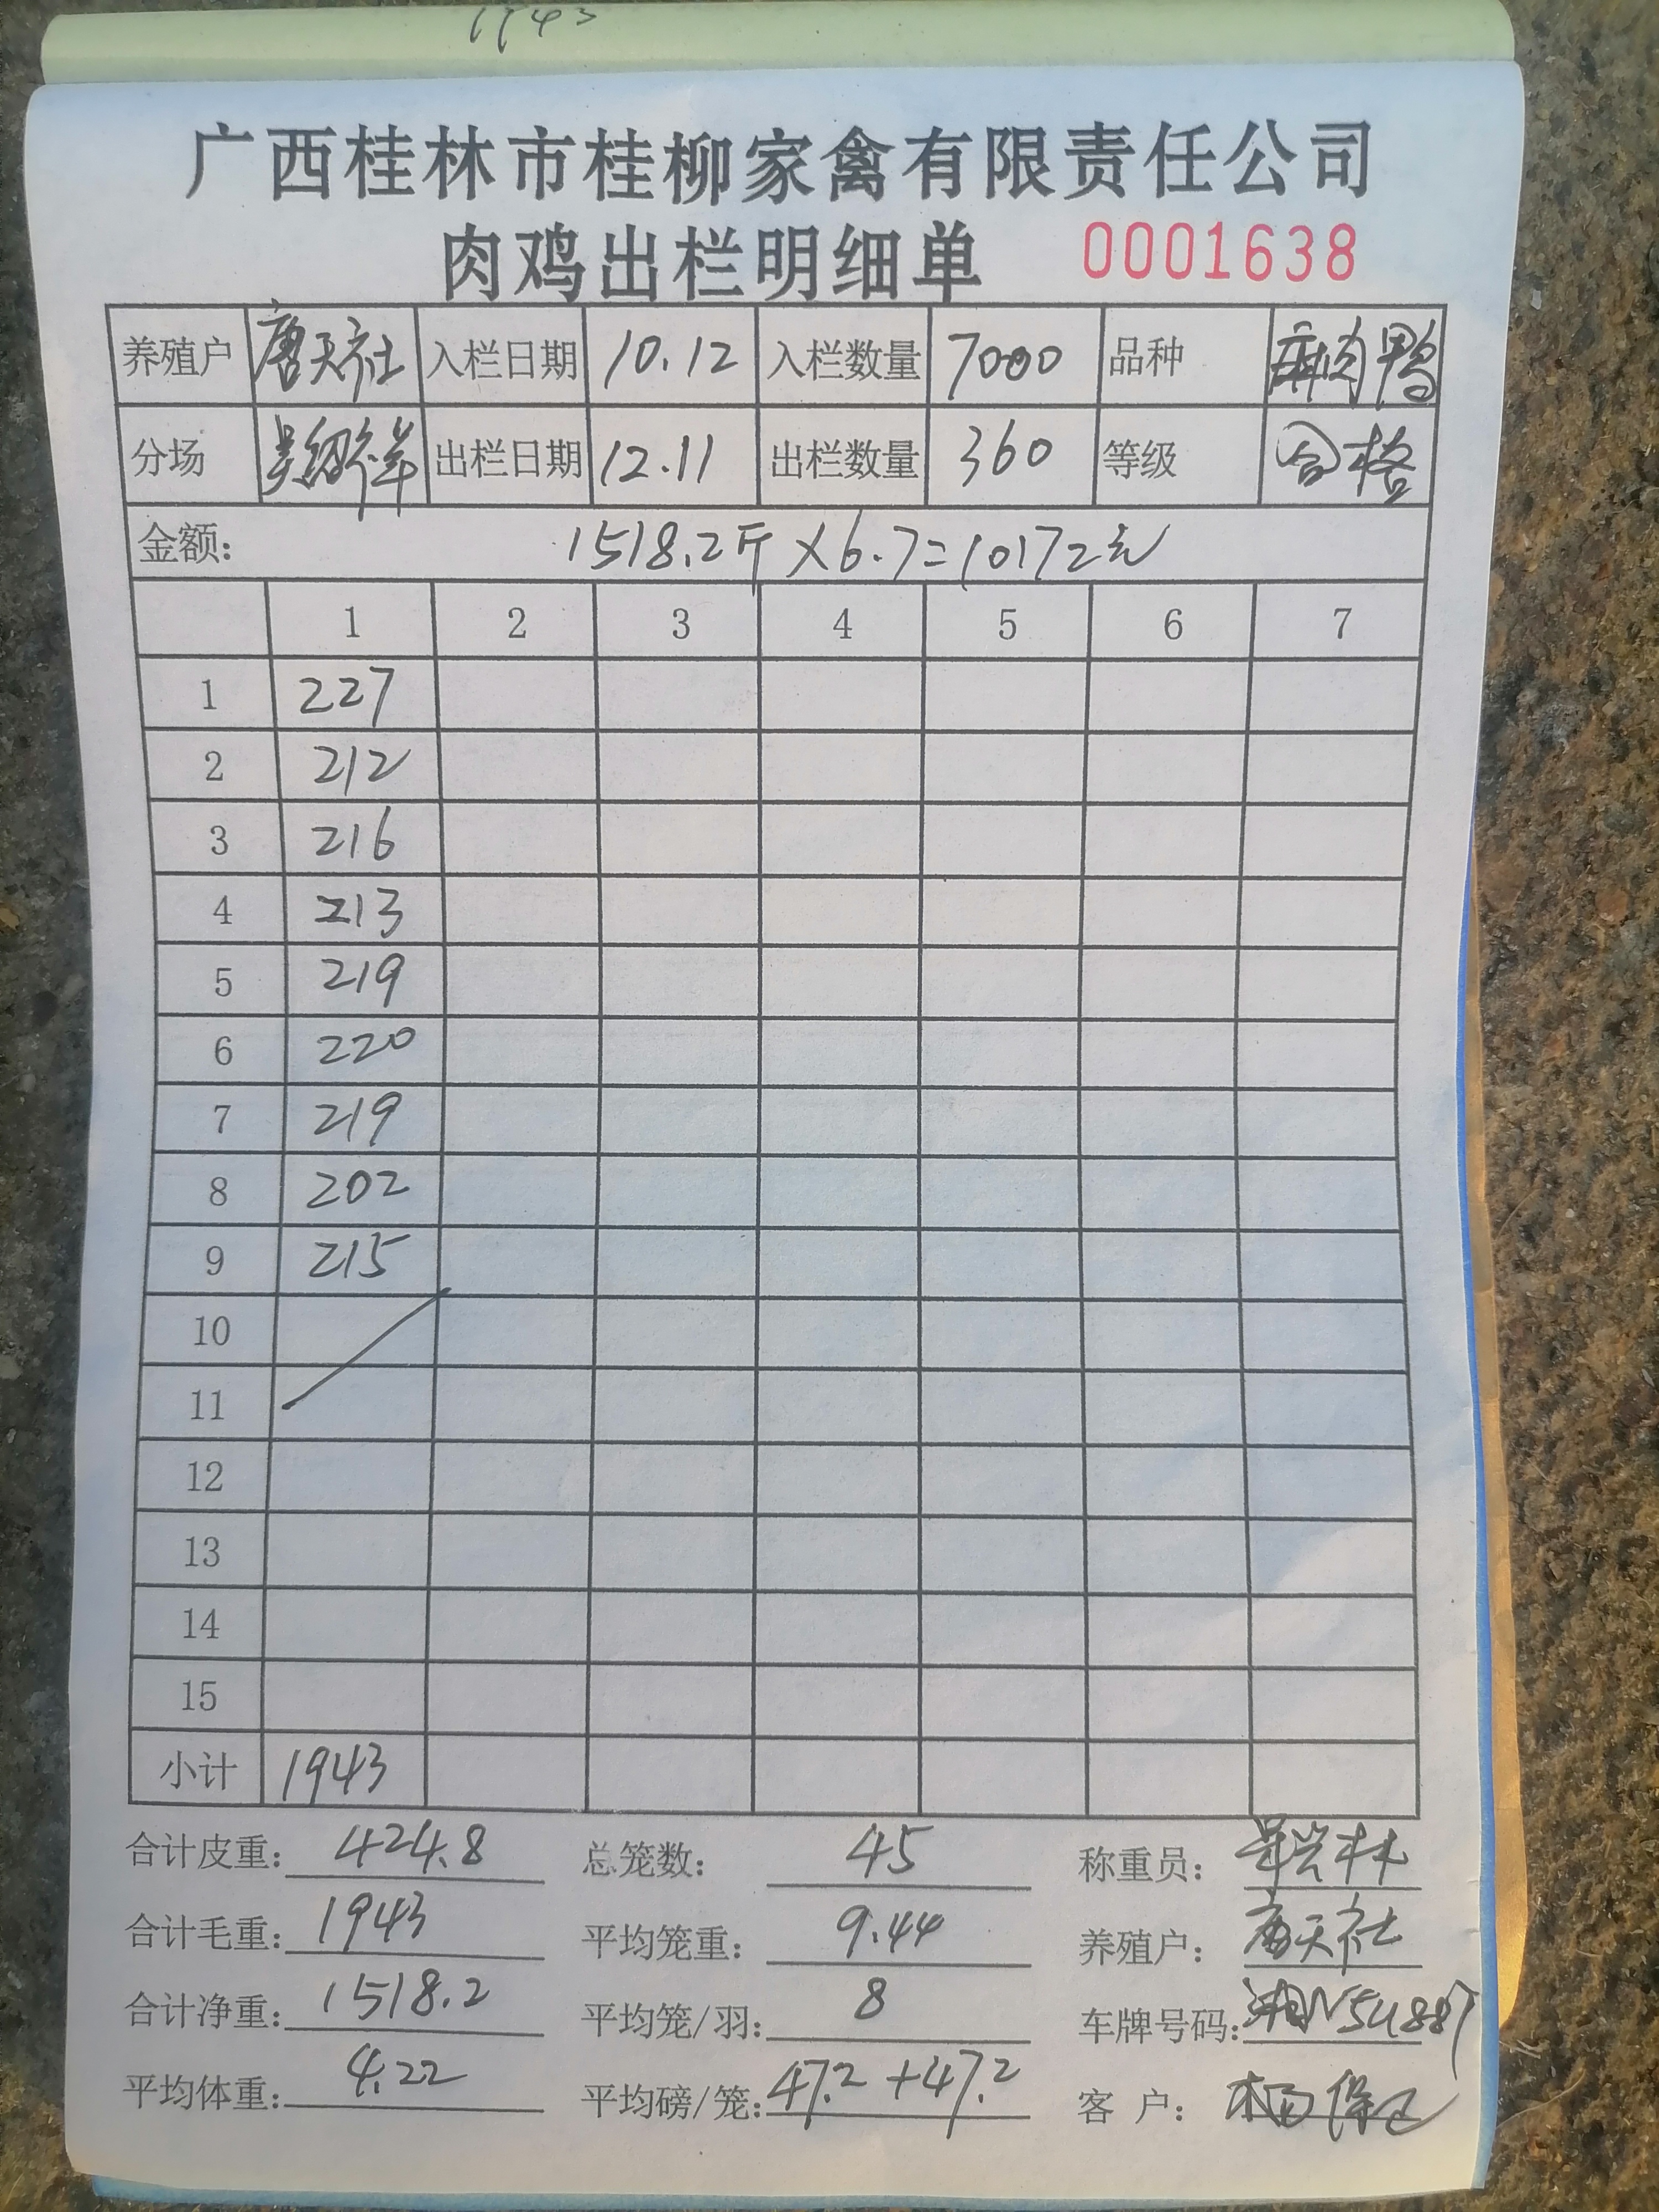 1943
广西桂林市桂柳家禽有限责任公司
肉鸡出栏明细单 0001638
养殖户 唐天社 入栏日期 10.12 入栏数量 7000 品种 麻肉鸭
分场 吴绍祥 出栏日期 12.11 出栏数量 360 等级 合格
金额: 1518.2斤×6.7=10172元
1 2 3 4 5 6 7
1 227
2 212
3 216
4 213
5 219
6 220
7 219
8 202
9 215
10
11
12
13
14
15
小计 1943
合计皮重: 424.8 总笼数: 45 称重员:
合计毛重: 1943 平均笼重: 9.44 养殖户: 唐天社
合计净重: 1518.2 平均笼/羽: 8 车牌号码: 湘N5U887
平均体重: 4.22 平均磅/笼: 47.2+47.2 客 户: